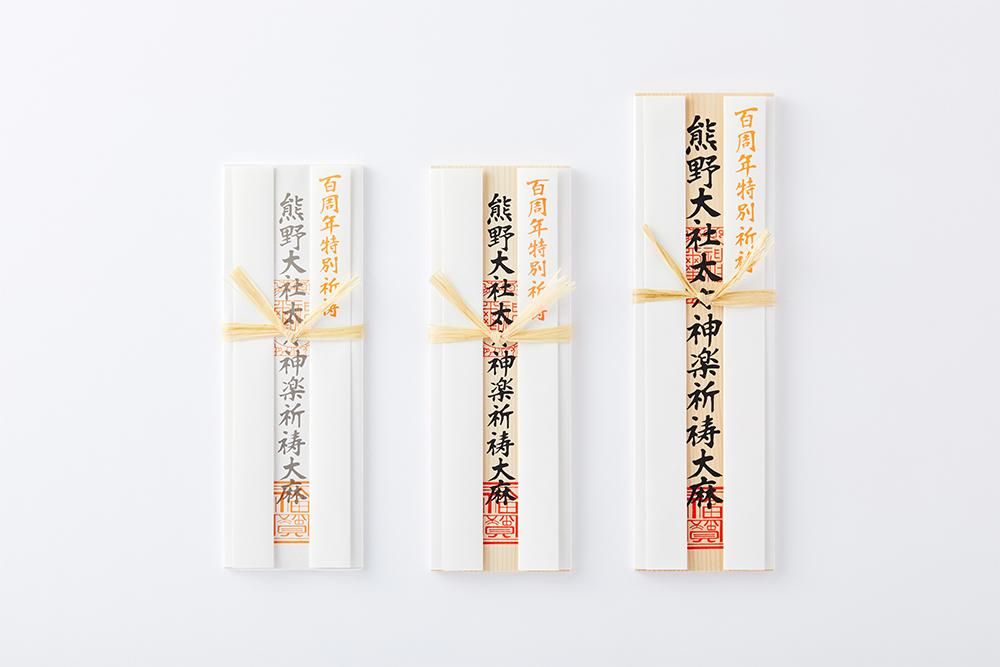 百周年特別祈祷
熊野大社太神楽祈祷大麻
百周年特別祈祷
熊野大社太神楽祈祷大麻
百周年特別祈祷
熊野大社太神楽祈祷大麻